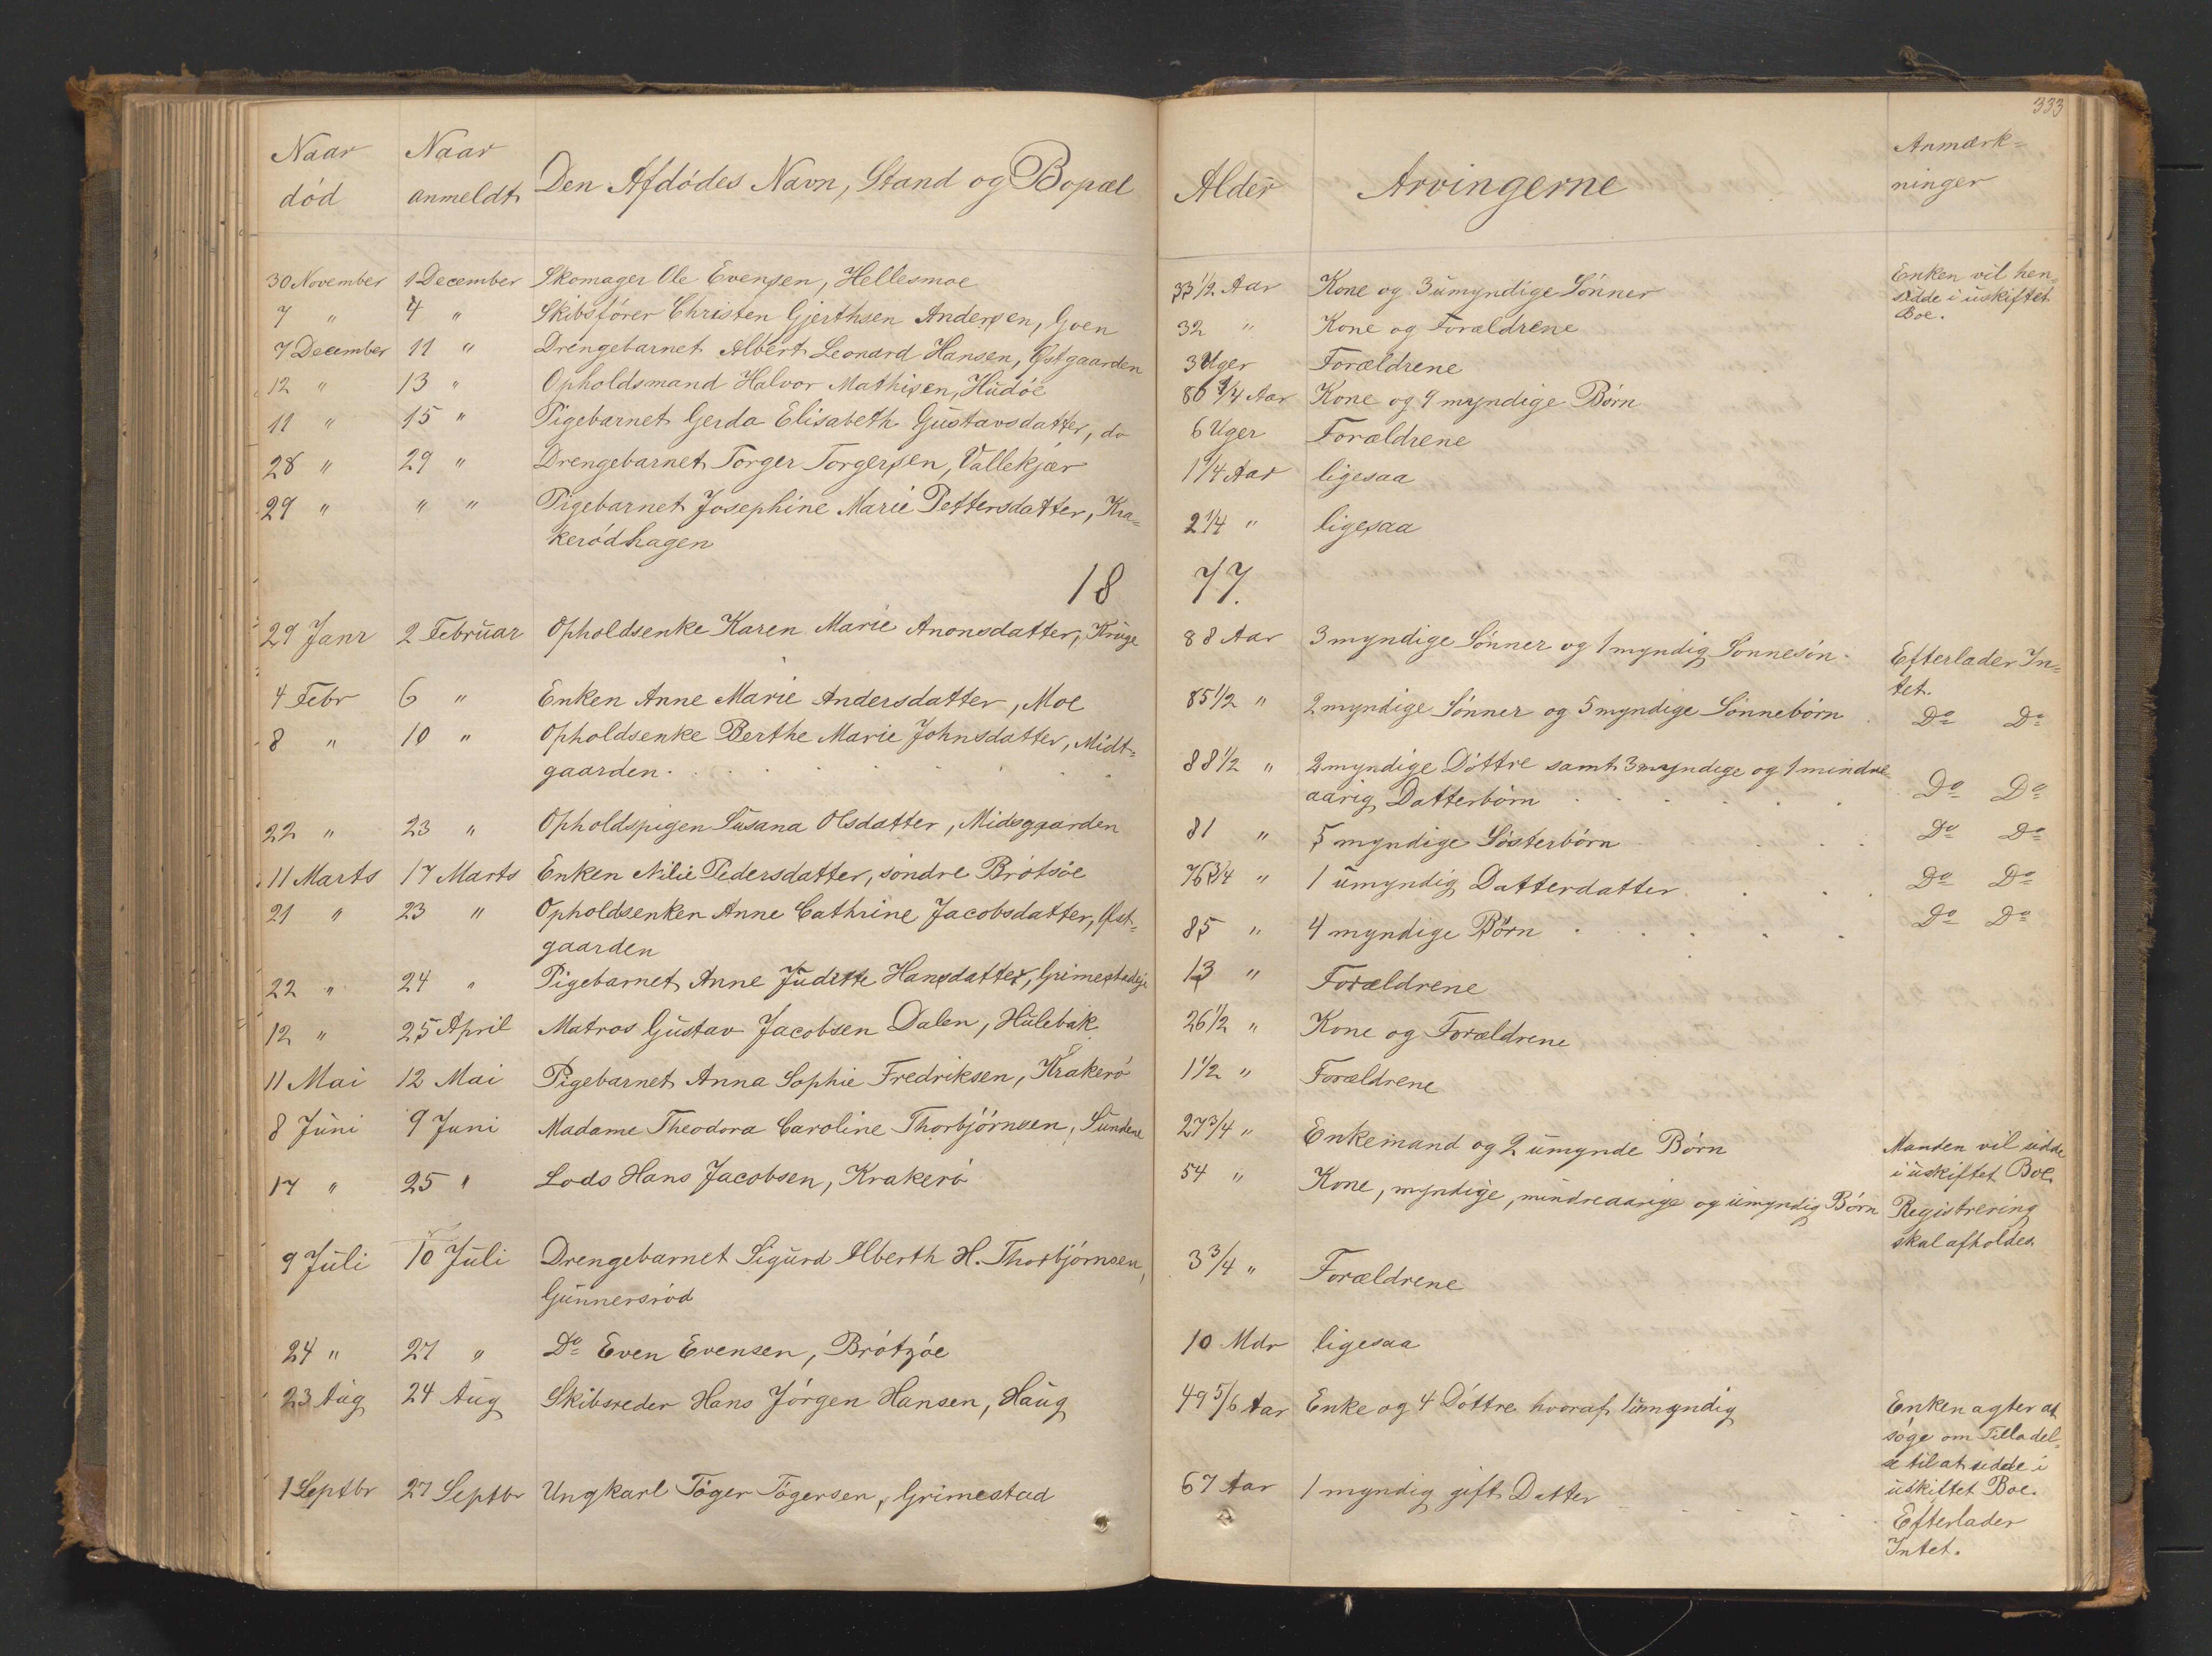 333
Naar død | Naar anmeldt | Den Afdødes Navn, Stand og Bopæl | Alder | Arvingerne | Anmærkninger
30 November | 1 December | Skomager Ole Evensen, Hellesmoe | 33 1/2 Aar | Kone og 3 umyndige Sønner | Enken vil hen=
sidde i uskiftet
Boe.
7 " | 4 " | Skibsfører Christen Gjerthsen Andersen, Goen | 32 " | Kone og Forældrene
7 December | 11 " | Drengebarnet Albert Leonard Hansen, Østgaarden | 3 Uger | Forældrene
12 " | 13 " | Opholdsmand Halvor Mathisen, Hudøe | 86 1/4 Aar | Kone og 9 myndige Børn
11 " | 15 " | Pigebarnet Gerda Elisabeth Gustavsdatter, do | 6 Uger | Forældrene
28 " | 29 " | Drengebarnet Torger Torgersen, Vallekjær | 1 1/4 Aar | ligesaa
29 " | " " | Pigebarnet Josephine Marie Pettersdatter, Kra=
kerødhagen | 2 1/4 " | ligesaa
18 77.
29 Janr | 2 Februar | Opholdsenke Karen Marie Anonsdatter, Kruge | 88 Aar | 3 myndige Sønner og 1 myndig Sønnesøn. | Efterlader In=
tet.
4 Febr | 6 " | Enken Anne Marie Andersdatter, Moe | 85 1/2 " | 2 myndige Sønner og 5 myndige Sønnebørn | Do Do
8 " | 10 " | Opholdsenke Berthe Marie Johnsdatter, Midt=
gaarden | 88 1/2 " | 2 myndige Døttre samt 3 myndige og 1 mindre=
aarig Datterbørn | Do Do
22 " | 23 " | Opholdspigen Susana Olsdatter, Midsgaarden | 81 " | 5 myndige Søsterbørn | Do Do
11 Marts | 17 Marts | Enken Nilie Pedersdatter, søndre Brøtsøe | 76 3/4 " | 1 umyndig Datterdatter | Do Do
21 " | 23 " | Opholdsenken Anne Cathrine Jacobsdatter, Øst=
gaarden | 85 " | 4 myndige Børn | Do Do
22 " | 24 " | Pigebarnet Anne Juditte Hansdatter, Grimestadeje | 13 " | Forældrene
12 " | 25 April | Matros Gustav Jacobsen Dalen, Hulebak | 26 1/2 " | Kone og Forældrene
11 Mai | 12 Mai | Pigebarnet Anna Sophie Fredriksen, Krakerø | 1 1/2 " | Forældrene
8 Juni | 9 Juni | Madame Theodora Caroline Thorbjørnsen, Sundene | 27 3/4 " | Enkemand og 2 umynde Børn | Manden vil sidde
i uskiftet Boe.
17 " | 25 " | Lods Hans Jacobsen, Krakerø | 54 " | Kone, myndige, mindreaarige og umyndig Børn | Registrering
skal afholdes.
9 Juli | 10 Juli | Drengebarnet Sigurd Alberth H. Thorbjørnsen,
Gunnersrød | 3 3/4 " | Forældrene
24 " | 27 " | Do Even Evensen, Brøtzøe | 10 Mdr | ligesaa
23 Aug | 24 Aug | Skibsreder Hans Jørgen Hansen, Haug | 49 5/6 Aar | Enke og 4 Døttre hvoraf 1 umyndig | Enken agter at
søge om Tilladel=
se til at sidde i
uskiftet Boe.
1 Septbr | 27 Septbr | Ungkarl Tøger Tøgersen, Grimestad | 67 Aar | 1 myndig gift Datter | Efterlader
Intet.